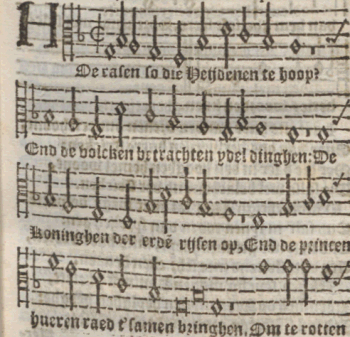 H
Oe rasen so die Heijdenen te hoop?
End de volcken betrachten ydel dinghen: De
Koninghen der erdē rijsen op, End de princen
hueren raed t'samen bringhen. Om te rotten